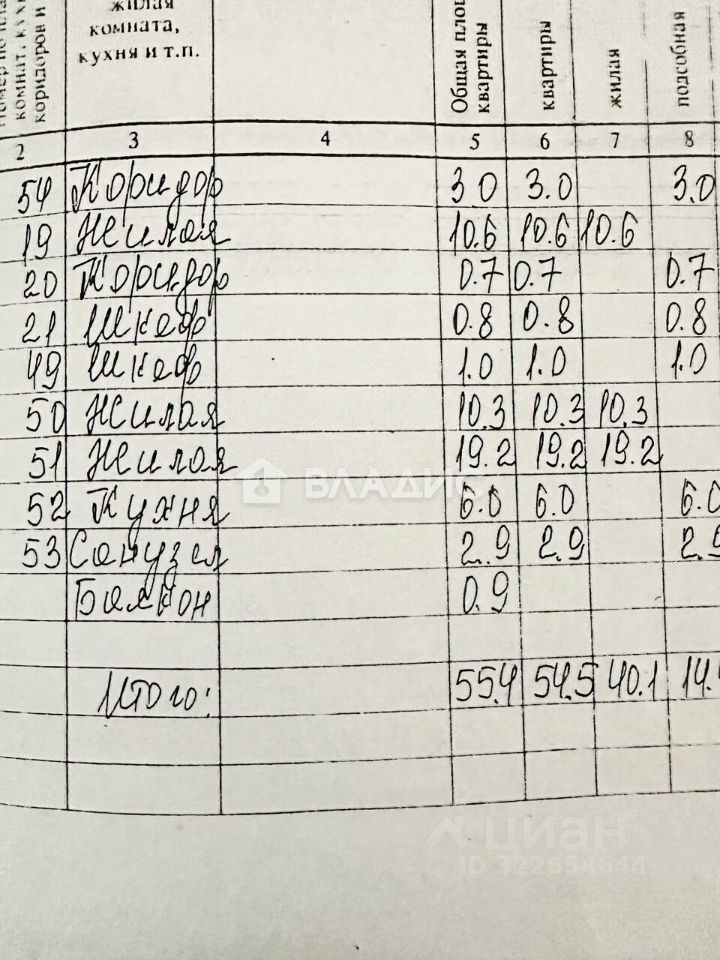 жилая
комната,
кухня и т.п.
комнат, кухни
коридоров и
Общая пло
квартиры
квартиры
жилая
подсобная
2 3 4 5 6 7 8
54 Коридор 3.0 3.0 3.0
19 Жилая 10.6 10.6 10.6
20 Коридор 0.7 0.7 0.7
21 Шкаф 0.8 0.8 0.8
49 Шкаф 1.0 1.0 1.0
50 Жилая 10.3 10.3 10.3
51 Жилая 19.2 19.2 19.2
ВЛАДИС
52 Кухня 6.0 6.0 6.0
53 Санузел 2.9 2.9 2.9
Балкон 0.9
Итого: 55.4 54.5 40.1 14.
циан
ID 322654644